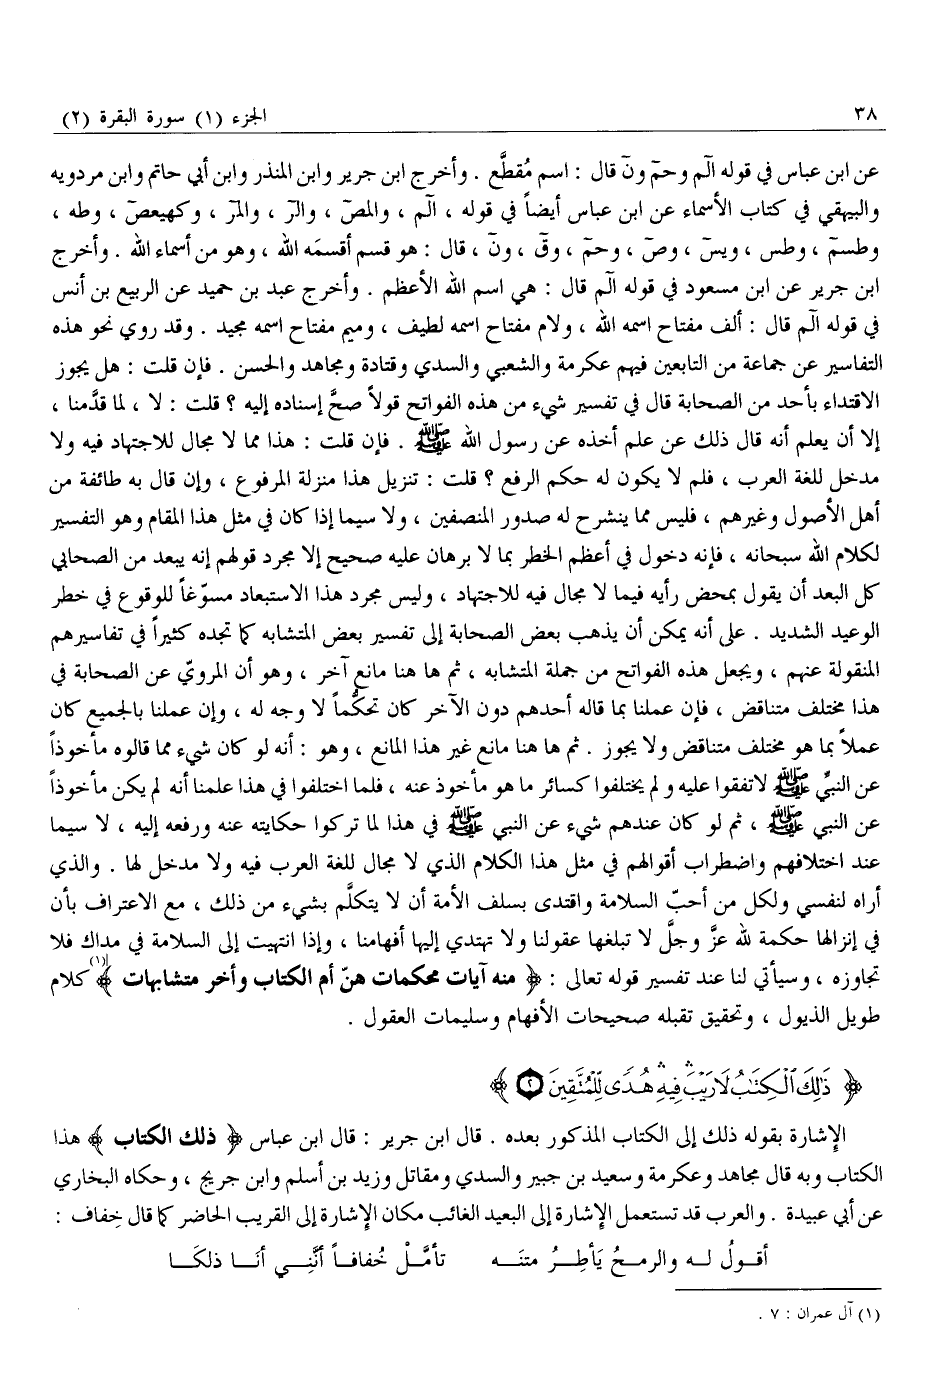 ٣٨ الجزء (١) سورة البقرة (٢)
عن ابن عباس في قوله الٓم وحمٓ ونٓ قال : اسم مُقطَّع . وأخرج ابن جرير وابن المنذر وابن أبي حاتم وابن مردويه
والبيهقي في كتاب الأسماء عن ابن عباس أيضاً في قوله ، الٓم ، والمصٓ ، والرٓ ، والمرٓ ، وكهيعصٓ ، وطه ،
وطسمٓ ، وطس ، ويسٓ ، وصٓ ، وحمٓ ، وقٓ ، ونٓ ، قال : هو قسم أقسمَه الله ، وهو من أسماء الله . وأخرج
ابن جرير عن ابن مسعود في قوله الٓم قال : هي اسم الله الأعظم . وأخرج عبد بن حميد عن الربيع بن أنس
في قوله الٓم قال : ألف مفتاح اسمه الله ، ولام مفتاح اسمه لطيف ، وميم مفتاح اسمه مجيد . وقد روي نحو هذه
التفاسير عن جماعة من التابعين فيهم عكرمة والشعبي والسدي وقتادة ومجاهد والحسن . فإن قلت : هل يجوز
الاقتداء بأحد من الصحابة قال في تفسير شيء من هذه الفواتح قولاً صحَّ إسناده إليه ؟ قلت : لا ، لما قدَّمنا ،
إلا أن يعلم أنه قال ذلك عن علم أخذه عن رسول الله ﷺ . فإن قلت : هذا مما لا مجال للاجتهاد فيه ولا
مدخل للغة العرب ، فلم لا يكون له حكم الرفع ؟ قلت : تنزيل هذا منزلة المرفوع ، وإن قال به طائفة من
أهل الأصول وغيرهم ، فليس مما ينشرح له صدور المنصفين ، ولا سيما إذا كان في مثل هذا المقام وهو التفسير
لكلام الله سبحانه ، فإنه دخول في أعظم الخطر بما لا برهان عليه صحيح إلا مجرد قولهم إنه يبعد من الصحابي
كل البعد أن يقول بمحض رأيه فيما لا مجال فيه للاجتهاد ، وليس مجرد هذا الاستبعاد مسوّغاً للوقوع في خطر
الوعيد الشديد . على أنه يمكن أن يذهب بعض الصحابة إلى تفسير بعض المتشابه كما تجده كثيراً في تفاسيرهم
المنقولة عنهم ، ويجعل هذه الفواتح من جملة المتشابه ، ثم ها هنا مانع آخر ، وهو أن المرويّ عن الصحابة في
هذا مختلف متناقض ، فإن عملنا بما قاله أحدهم دون الآخر كان تحكُّماً لا وجه له ، وإن عملنا بالجميع كان
عملاً بما هو مختلف متناقض ولا يجوز . ثم ها هنا مانع غير هذا المانع ، وهو : أنه لو كان شيء مما قالوه مأخوذاً
عن النبيِّ ﷺ لاتفقوا عليه ولم يختلفوا كسائر ما هو مأخوذ عنه ، فلما اختلفوا في هذا علمنا أنه لم يكن مأخوذاً
عن النبي ﷺ ، ثم لو كان عندهم شيء عن النبي ﷺ في هذا لما تركوا حكايته عنه ورفعه إليه ، لا سيما
عند اختلافهم واضطراب أقوالهم في مثل هذا الكلام الذي لا مجال للغة العرب فيه ولا مدخل لها . والذي
أراه لنفسي ولكل من أحبّ السلامة واقتدى بسلف الأمة أن لا يتكلَّم بشيء من ذلك ، مع الاعتراف بأن
في إنزالها حكمة لله عزَّ وجلَّ لا تبلغها عقولنا ولا تهتدي إليها أفهامنا ، وإذا انتهيت إلى السلامة في مداك فلا
تجاوزه ، وسيأتي لنا عند تفسير قوله تعالى : ﴿ منه آيات محكمات هنّ أم الكتاب وأخر متشابهات ﴾(١) كلام
طويل الذيول ، وتحقيق تقبله صحيحات الأفهام وسليمات العقول .
﴿ ذَٰلِكَ ٱلْكِتَٰبُ لَا رَيْبَ ۛ فِيهِ ۛ هُدًى لِّلْمُتَّقِينَ ٢ ﴾
الإشارة بقوله ذلك إلى الكتاب المذكور بعده . قال ابن جرير : قال ابن عباس ﴿ ذلك الكتاب ﴾ هذا
الكتاب وبه قال مجاهد وعكرمة وسعيد بن جبير والسدي ومقاتل وزيد بن أسلم وابن جريج ، وحكاه البخاري
عن أبي عبيدة . والعرب قد تستعمل الإشارة إلى البعيد الغائب مكان الإشارة إلى القريب الحاضر كما قال خِفاف :
أقـولُ لـه والرمـحُ يَأطِـرُ متنَـه تأمَّـلْ خُفافـاً أنَّنِـي أنَـا ذلكَـا
(١) آل عمران : ٧ .